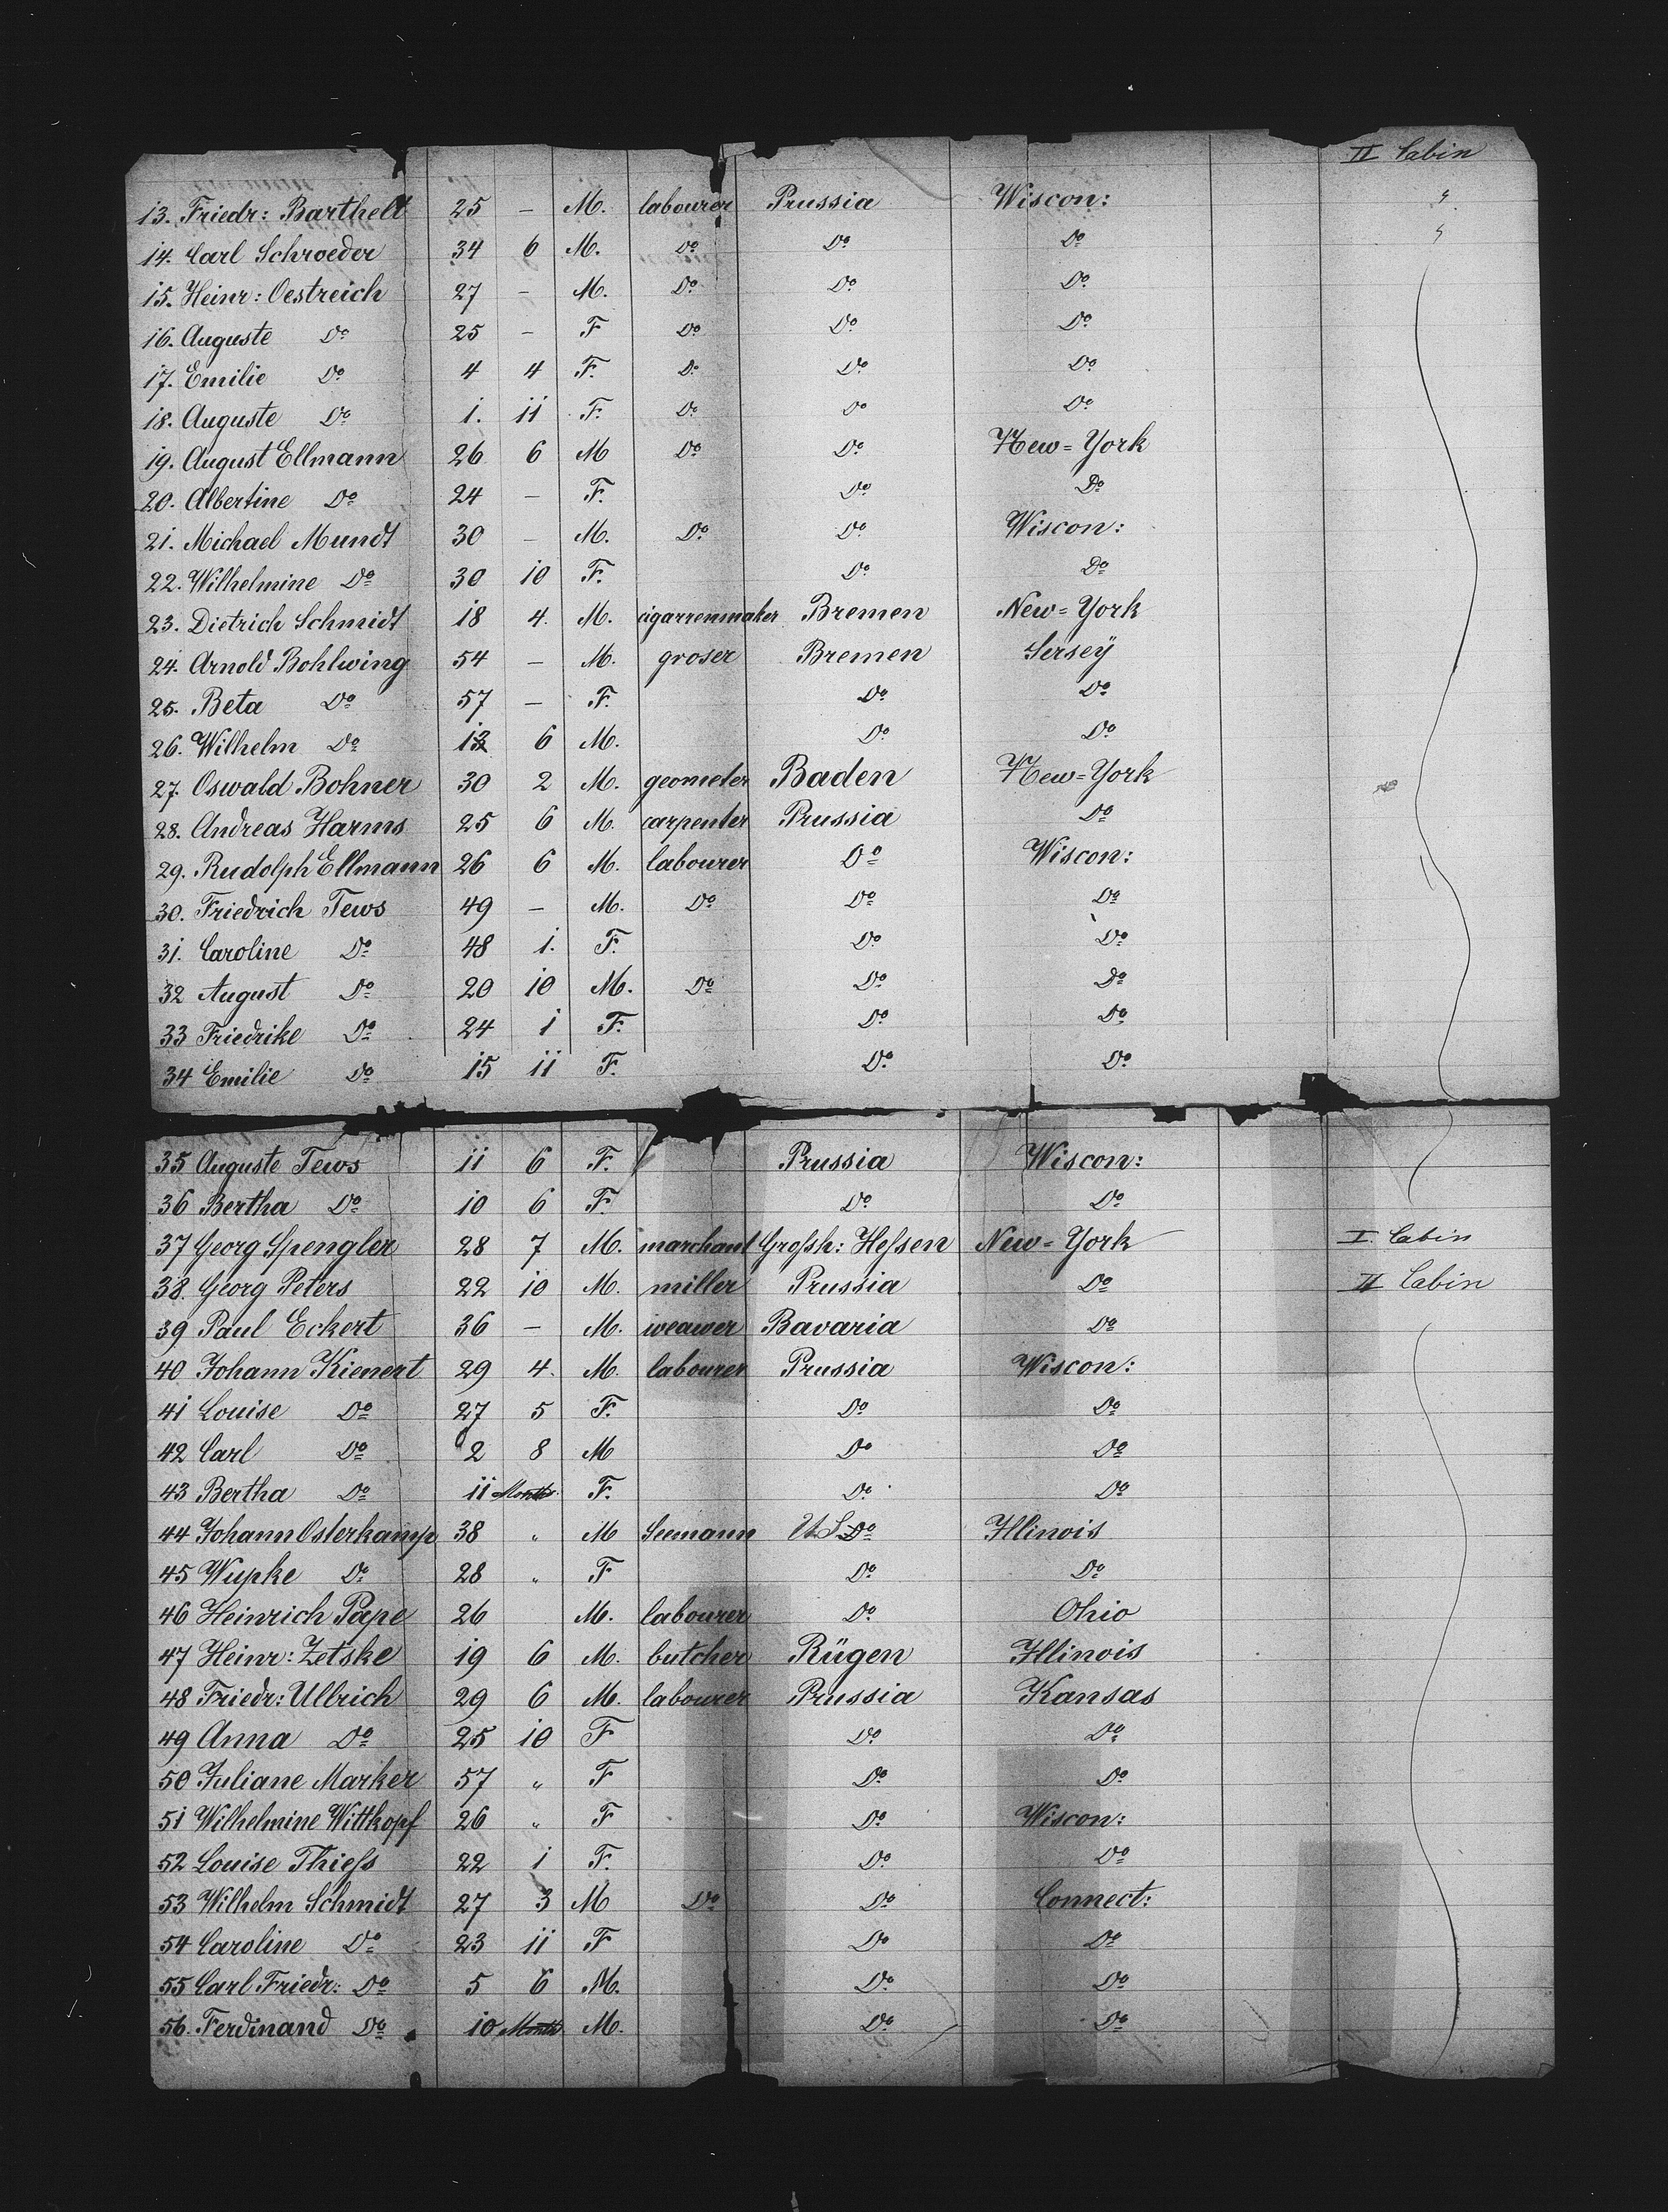 II Cabin
13. Friedr: Barthelt 25 – M. labourer Prussia Wiscon: "
14. Carl Schroeder 34 6 M. Do Do Do "
15. Heinr: Oestreich 27 – M. Do Do Do
16. Auguste Do 25 – F Do Do Do
17. Emilie Do 4 4 F. Do Do Do
18. Auguste Do 1. 11 F. Do Do Do
19. August Ellmann 26 6 M Do Do New=York
20. Albertine Do 24 – F. Do Do
21. Michael Mundt 30 – M. Do Do Wiscon:
22. Wilhelmine Do 30 10 F. Do Do
23. Dietrich Schmidt 18 4. M. cigarrenmaker Bremen New=York
24. Arnold Bohlwing 54 – M. groser Bremen Jersey
25. Beta Do 57 – F. Do Do
26. Wilhelm Do 6 M. Do Do
27. Oswald Bohner 30 2 M. geometer Baden New=York
28. Andreas Harms 25 6 M. carpenter Prussia Do
29. Rudolph Ellmann 26 6 M. labourer Do Wiscon:
30. Friedrich Tews 49 – M. Do Do Do
31. Caroline Do 48 1. F. Do Do
32 August Do 20 10 M. Do Do Do
33 Friedrike Do 24 1 F. Do Do
34 Emilie Do 15 11 F. Do Do
35 Auguste Tews 11 6 F. Prussia Wiscon:
36 Bertha Do 10 6 F. Do Do
37 Georg Spengler 28 7 M. marchant Großh: Heßen New=York I. Cabin
38. Georg Peters 22 10 M. miller Prussia Do II Cabin
39 Paul Eckert 36 – M. weawer Bavaria Do
40 Johann Kienert 29 4. M. labourer Prussia Wiscon:
41 Louise Do 27 5 F. Do Do
42 Carl Do 2 8 M Do Do
43 Bertha Do 11 Months F. Do Do
44 Johann Osterkamp 38 " M Seemann U.S. Do Illinois
45 Wupke Do 28 " F Do Do
46 Heinrich Pape 26 M. labourer Do Ohio
47 Heinr: Zetske 19 6 M. butcher Rügen Illinois
48 Friedr: Ullrich 29 6 M. labourer Prussia Kansas
49 Anna Do 25 10 F Do Do
50 Juliane Marker 57 " F Do Do
51 Wilhelmine Wittkopf 26 " F Do Wiscon:
52 Louise Thieß 22 1 F. Do Do
53 Wilhelm Schmidt 27 3 M Do Do Connect:
54 Caroline Do 23 11 F Do Do
55 Carl Friedr: Do 5 6 M. Do Do
56. Ferdinand Do 10 Month M. Do Do